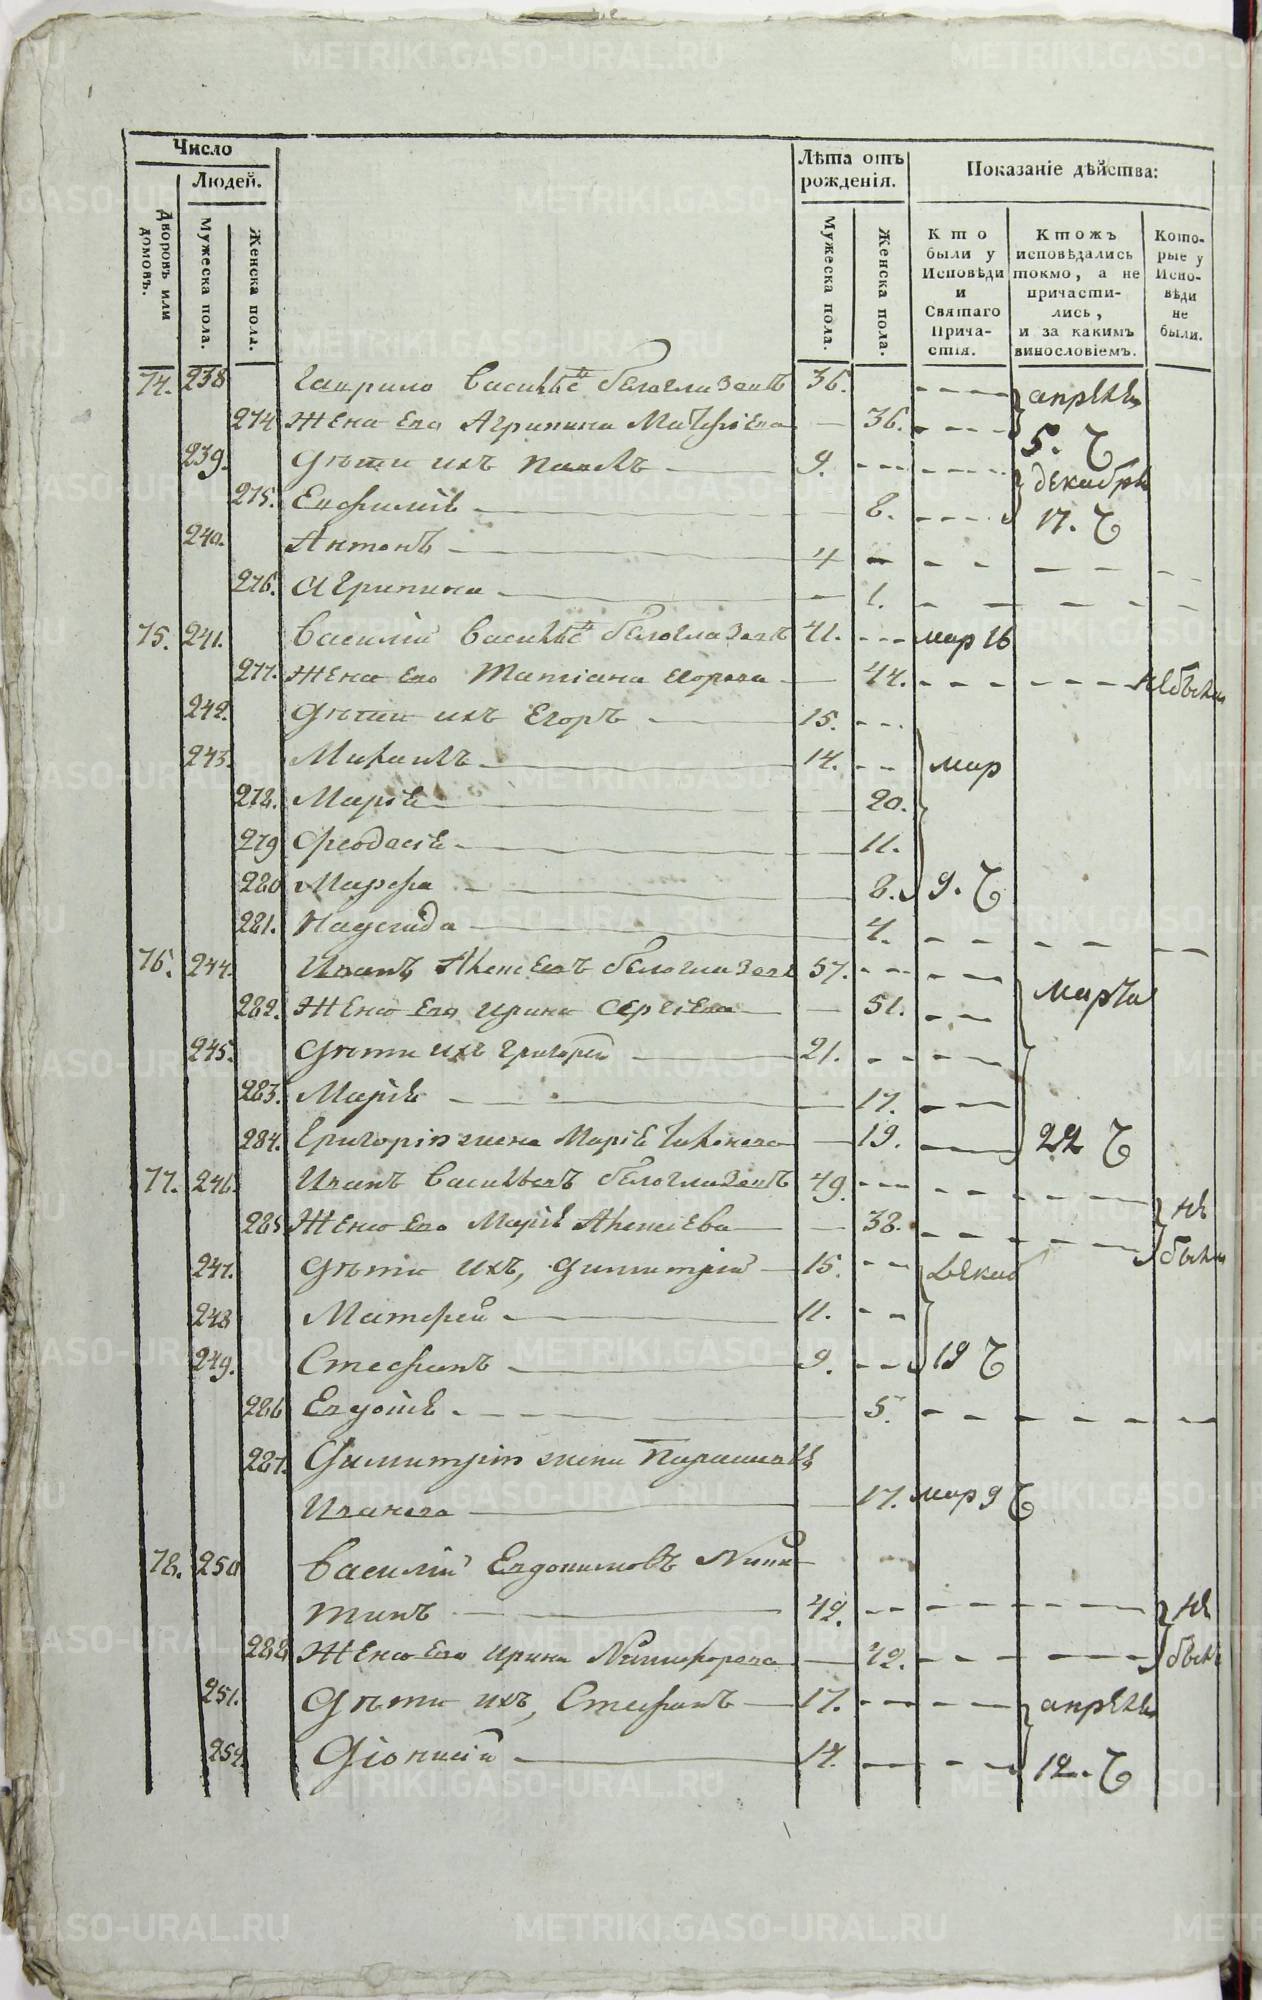 Число
Людей.
Дворовъ или домовъ.
Мужеска пола.
Женска пола.
Лѣта отъ рожденія.
Мужеска пола.
Женска пола.
Показаніе дѣйства:
Кто были у Исповѣди и Святаго Прича-стія.
Ктожъ исповѣдались токмо, а не причасти-лись, и за какимъ винословіемъ.
Кото-рые у Испо-вѣди не были.
74. 238 Гаврило Василье Белоглазовъ 36. апрѣля
274 Жена его Агрипина 36. 5. Ч
239. Дѣти ихъ Павелъ 9. декабря
275. Евфимія 8. 17. Ч
240. Антонъ 4
276. Агрипина 1.
75. 241. Василій Василье Белоглазовъ 41. мар 16
277. Жена его Татіана 44. не были
242. Дѣти ихъ Егоръ 15.
243. Михаилъ 14. мар
278. Марія 20.
279 Феодосія 11.
280 Марфа 8. 9. Ч
281. Надежда 4.
76. 244. Иванъ Алексеевъ Белоглазовъ 57. марта
282. Жена его Ирина Сергіева 51.
245. Дѣти ихъ Григорей 21.
283. Марія 17.
284. Григорія жена Марія 19. 22 Ч
77. 246. Иванъ Васильевъ Белоглазовъ 49. не
285 Жена его Марія Алексіева 38. были
247. Дѣти ихъ, Димитрій 15. декаб
248 Матфей 11.
249. Стефанъ 9. 19 Ч
286 Евдокія 5.
287. Димитрія жена
Иванова 17. мар 9 Ч
78. 250 Василій Евдокимовъ Ники-
тинъ 42. не
288 Жена его Ирина Никифорова 42. были
251. Дѣти ихъ, Стефанъ 17. апрѣля
252. Діонисій 14. 12. Ч
METRIKI.GASO-URAL.RU